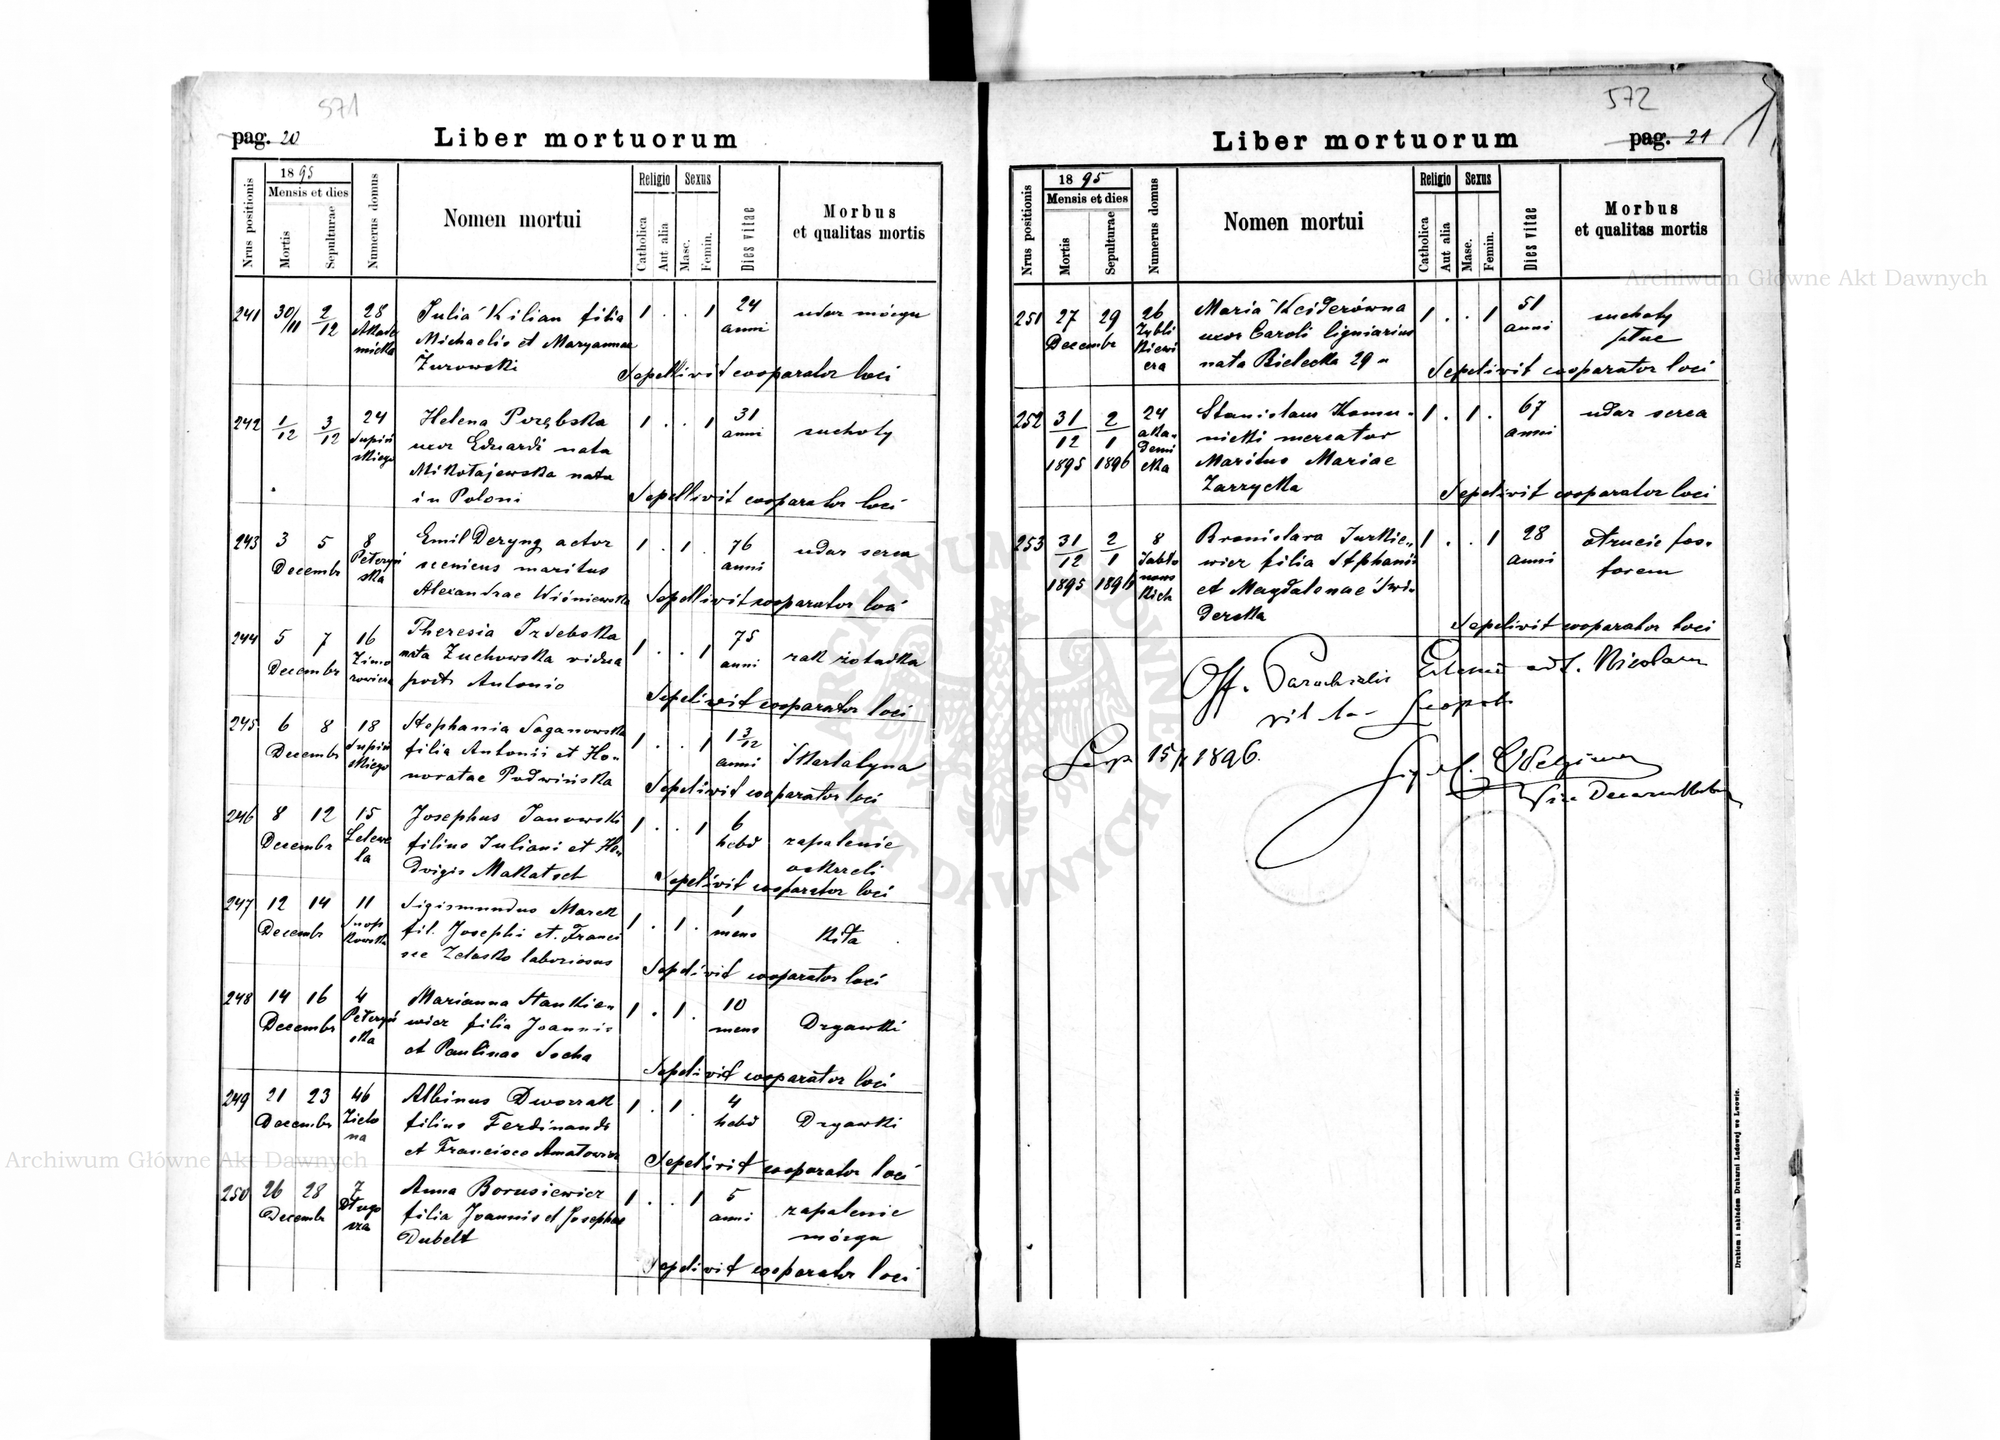 571
pag. 20
Liber mortuorum
Nrus positionis
1895
Mensis et dies
Mortis
Sepulturae
Numerus domus
Nomen mortui
Religio
Catholica
Aut alia
Sexus
Masc.
Femin.
Dies vitae
Morbus
et qualitas mortis
241 30/11 2/12 28 Akade
micka
Julia Kilian filia
Michaelis et Maryannae
Żurowski
1 . . 1 24
anni
udar mózgu
Sepellivit cooperator loci
242 1/12 3/12 24
Supiń
skiego
Helena Porębska
uxor Eduardi nata
Mikołajewska nata
in Poloni
1 . . 1 31
anni
suchoty
Sepellivit cooperator loci
243 3 5
Decembr
8
Peteryń
ska
Emil Deryng actor
scenicus maritus
Alexandrae Wiśniewska
1 . 1 . 76
anni
udar serca
Sepellivit cooperator loci
244 5 7
Decembr
16
Zimo
rowicza
Theresia Trzebska
nata Zuchowska vidua
post Antonio
1 . . 1 75
anni
rak żołądka
Sepelivit cooperator loci
245 6 8
Decembr
18
Supiń
skiego
Stephania Saganowska
filia Antonii et Ho-
noratae Podwińska
1 . . 1 1 3/12
anni
Szkarlatyna
Sepelivit cooperator loci
246 8 12
Decembr
15
Lelewe
la
Josephus Janowski
filius Juliani et He-
dvigis Makatsch
1 . . 1 6
hebd
zapalenie
oskrzeli
Sepelivit cooperator loci
247 12 14
Decembr
11
Snop
kowska
Sigismundus Marek
fil. Josephi et. Franci
sce Zelasko laboriosus
1 . 1 . 1
mens
Kiła
Sepelivit cooperator loci
248 14 16
Decembr
4
Peteryń
ska
Marianna Stankie-
wicz filia Joannis
et Paulinae Socha
1 . 1 . 10
mens
Drgawki
Sepelivit cooperator loci
249 21 23
Decembr
46
Zielo
na
Albinus Dworzak
filius Ferdinandi
et Francisca Amatowicz
1 . 1 . 4
hebd
Drgawki
Sepelivit cooperator loci
250 26 28
Decembr
7
Długo
sza
Anna Borusiewicz
filia Joannis et Josephae
Dubelt
1 . . 1 5
anni
zapalenie
mózgu
Sepelivit cooperator loci
572
Liber mortuorum
pag. 21
Nrus positionis
1895
Mensis et dies
Mortis
Sepulturae
Numerus domus
Nomen mortui
Religio
Catholica
Aut alia
Sexus
Masc.
Femin.
Dies vitae
Morbus
et qualitas mortis
251 27 29
Decembr
26
Zybli
kiewi
cza
Maria
uxor Caroli ligniarius
nata Bielecka
1 . . 1 51
anni
suchoty
płuc
Sepelivit cooperator loci
252 31/12 1895 2/1 1896
24
aka-
demi
cka
Stanislaus Komu-
nicki mercator
Maritus Mariae
Zarzycka
1 . 1 . 67
anni
udar serca
Sepelivit cooperator loci
253 31/12 1895 2/1 1896
8
Jabło
nows
kich
Bronislava Jurkie-
wicz filia Stephani
et Magdalenae Świ-
derska
1 . . 1 28
anni
otrucie fos-
forem
Sepelivit cooperator loci
Off. Parochialis ad S. Nicolaum
Leopoli
Leop 15/1 1896.
Vice
Drukiem i nakładem Drukarni Ludowej we Lwowie.
Archiwum Główne Akt Dawnych
Archiwum Główne Akt Dawnych
ARCHIWUM GŁÓWNE AKT DAWNYCH